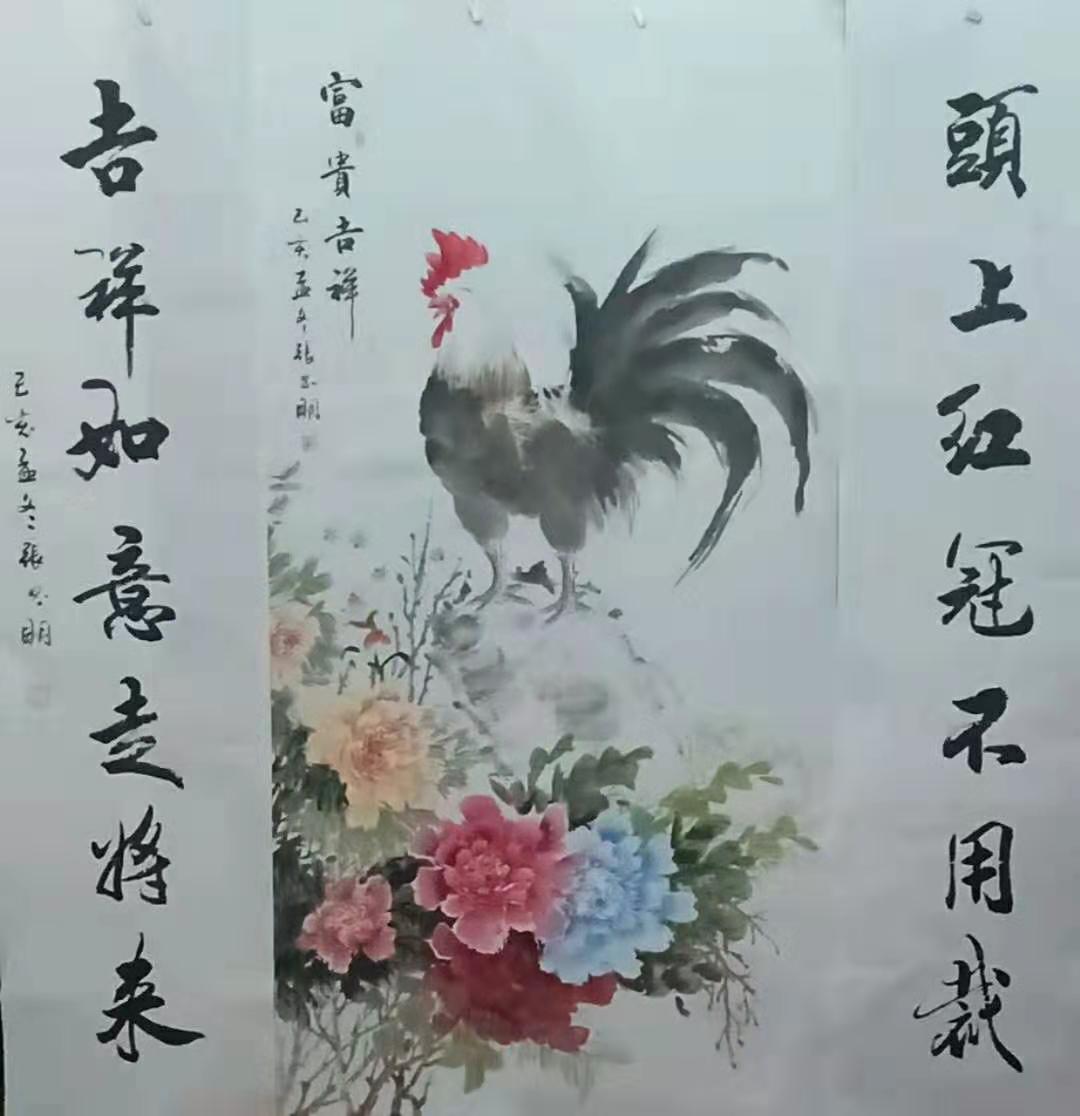 頭上红冠不用裁
富貴吉祥
己亥孟冬張忠明
吉祥如意走將来
己亥孟冬張忠明